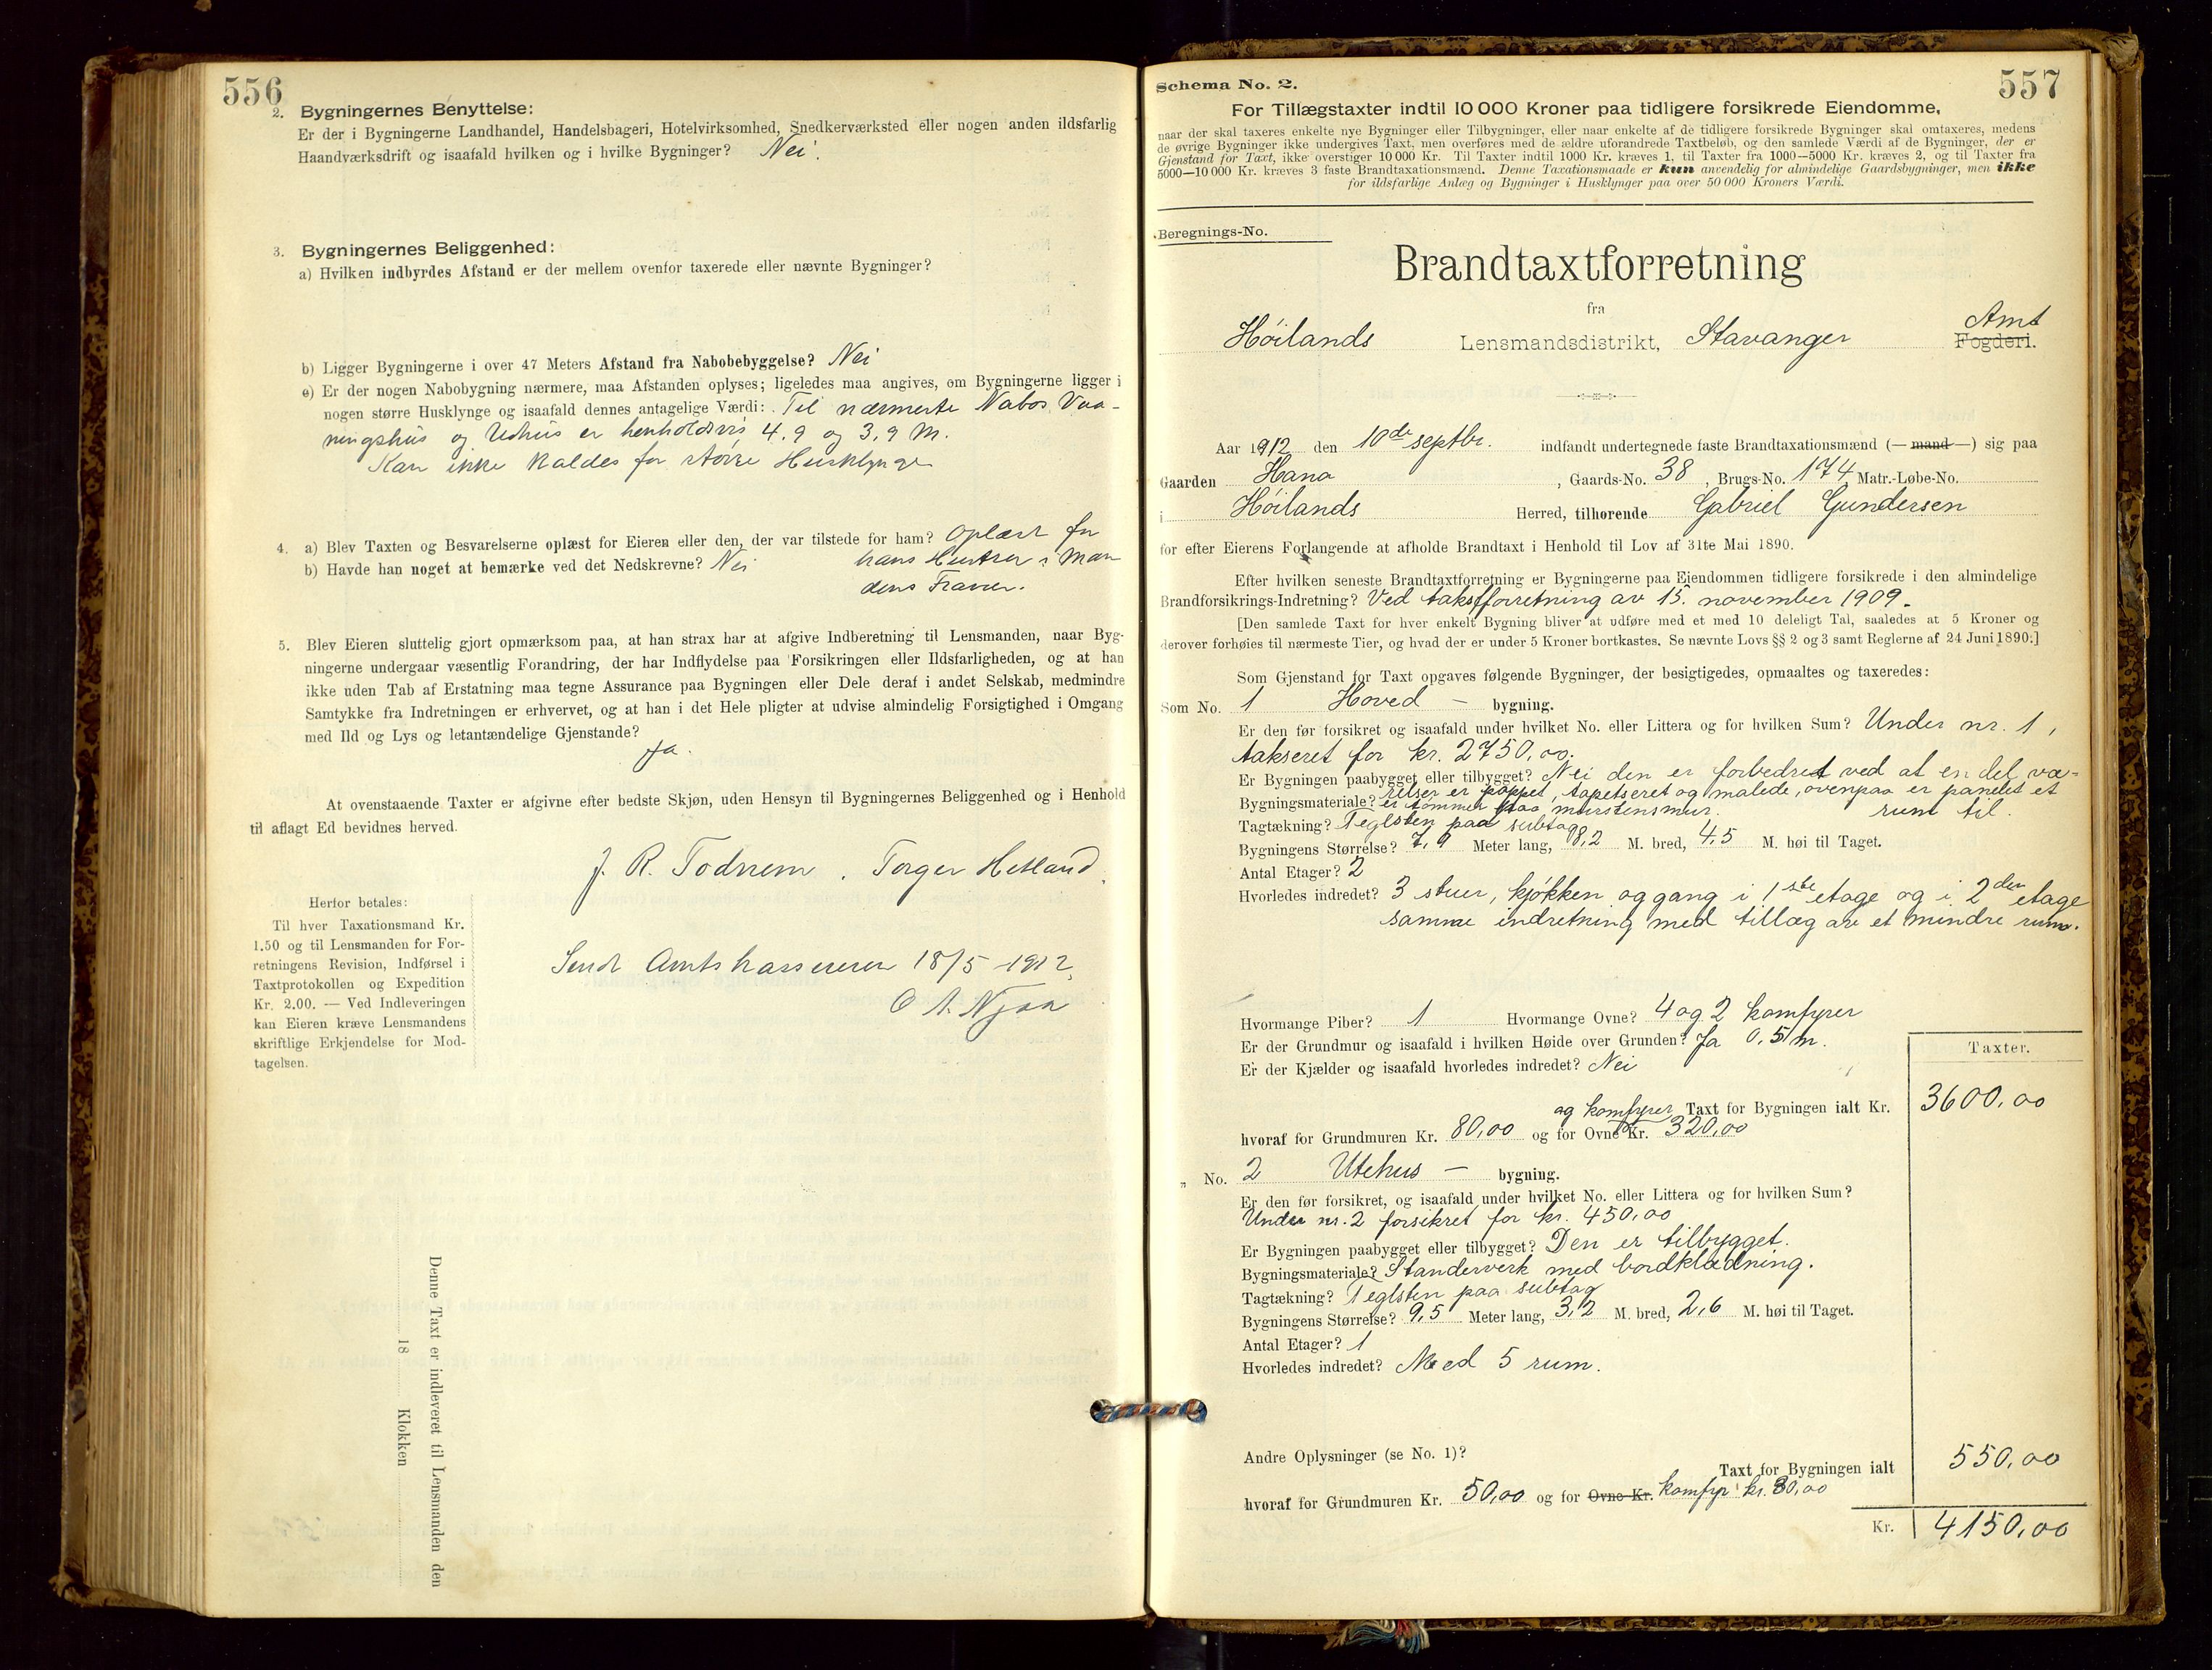 556
2. Bygningernes Benyttelse:
Er der i Bygningerne Landhandel, Handelsbageri, Hotelvirksomhed, Snedkerværksted eller nogen anden ildsfarlig
Haandværksdrift og isaafald hvilken og i hvilke Bygninger? Nei.
3. Bygningernes Beliggenhed:
a) Hvilken indbyrdes Afstand er der mellem ovenfor taxerede eller nævnte Bygninger?
b) Ligger Bygningerne i over 47 Meters Afstand fra Nabobebyggelse? Nei
c) Er der nogen Nabobygning nærmere, maa Afstanden oplyses; ligeledes maa angives, om Bygningerne ligger i
nogen større Husklynge og isaafald dennes antagelige Værdi: Til nærmeste Nabos Vaa-
ningshus og Udhus er henholdsvis 4,9 og 3,9 M.
Kan ikke kaldes for større Husklynge
4. a) Blev Taxten og Besvarelserne oplæst for Eieren eller den, der var tilstede for ham? Oplæst for
b) Havde han noget at bemærke ved det Nedskrevne? Nei hans Hustru i Man
dens Fravær.
5. Blev Eieren sluttelig gjort opmærksom paa, at han strax har at afgive Indberetning til Lensmanden, naar Byg-
ningerne undergaar væsentlig Forandring, der har Indflydelse paa Forsikringen eller Ildsfarligheden, og at han
ikke uden Tab af Erstatning maa tegne Assurance paa Bygningen eller Dele deraf i andet Selskab, medmindre
Samtykke fra Indretningen er erhvervet, og at han i det Hele pligter at udvise almindelig Forsigtighed i Omgang
med Ild og Lys og letantændelige Gjenstande?
Ja.
At ovenstaaende Taxter er afgivne efter bedste Skjøn, uden Hensyn til Bygningernes Beliggenhed og i Henhold
til aflagt Ed bevidnes herved.
J. R. Todnem. Torger Hetland.
Herfor betales:
Til hver Taxationsmand Kr.
1.50 og til Lensmanden for For-
retningens Revision, Indførsel i
Taxtprotokollen og Expedition
Kr. 2.00. — Ved Indleveringen
kan Eieren kræve Lensmandens
skriftlige Erkjendelse for Mod-
tagelsen.
Sendt Amtskassereren 18/5 1912.
O A. Njaa
Denne Taxt er indleveret til Lensmanden den
18 Klokken
557
Schema No. 2.
For Tillægstaxter indtil 10 000 Kroner paa tidligere forsikrede Eiendomme,
naar der skal taxeres enkelte nye Bygninger eller Tilbygninger, eller naar enkelte af de tidligere forsikrede Bygninger skal omtaxeres, medens
de øvrige Bygninger ikke undergives Taxt, men overføres med de ældre uforandrede Taxtbeløb, og den samlede Værdi af de Bygninger, der er
Gjenstand for Taxt, ikke overstiger 10 000 Kr. Til Taxter indtil 1000 Kr. kræves 1, til Taxter fra 1000—5000 Kr. kræves 2, og til Taxter fra
5000—10 000 Kr. kræves 3 faste Brandtaxationsmænd. Denne Taxationsmaade er kun anvendelig for almindelige Gaardsbygninger, men ikke
for ildsfarlige Anlæg og Bygninger i Husklynger paa over 50 000 Kroners Værdi.
Beregnings-No.
Brandtaxtforretning
fra
Amt
Høilands Lensmandsdistrikt, Stavanger Fogderi.
Aar 1912 den 10de septbr. indfandt undertegnede faste Brandtaxationsmænd (—mand—) sig paa
Gaarden Hana, Gaards-No. 38, Brugs-No. 174 Matr.-Løbe-No.
i Høilands Herred, tilhørende Gabriel Gundersen
for efter Eierens Forlangende at afholde Brandtaxt i Henhold til Lov af 31te Mai 1890.
Efter hvilken seneste Brandtaxtforretning er Bygningerne paa Eiendommen tidligere forsikrede i den almindelige
Brandforsikrings-Indretning? Ved takstforretning av 15. november 1909.
[Den samlede Taxt for hver enkelt Bygning bliver at udføre med et med 10 deleligt Tal, saaledes at 5 Kroner og
derover forhøies til nærmeste Tier, og hvad der er under 5 Kroner bortkastes. Se nævnte Lovs §§ 2 og 3 samt Reglerne af 24 Juni 1890.]
Som Gjenstand for Taxt opgaves følgende Bygninger, der besigtigedes, opmaaltes og taxeredes:
Som No. 1 Hoved — bygning.
Er den før forsikret og isaafald under hvilket No. eller Littera og for hvilken Sum? Under nr. 1,
takseret for kr. 2750,00.
Er Bygningen paabygget eller tilbygget? Nei den er forbedret ved at en del væ-
relser er pappet, tapetseret og malede, ovenpaa er panelet et
Bygningsmateriale? er tømmer paa murstensmur. rum til.
Tagtækning? Teglsten paa subtag
Bygningens Størrelse? 7,9 Meter lang, 8,2 M. bred, 4,5 M. høi til Taget.
Antal Etager? 2
Hvorledes indredet? 3 stuer, kjøkken og gang i 1ste etage og i 2den etage
samme indretning med tillæg av et mindre rum.
Hvormange Piber? 1 Hvormange Ovne? 4 og 2 komfyrer
Er der Grundmur og isaafald i hvilken Høide over Grunden? Ja 0,5 m.
Er der Kjælder og isaafald hvorledes indredet? Nei
Taxter.
og komfyrer Taxt for Bygningen ialt Kr. 3600,00
hvoraf for Grundmuren Kr. 80,00 og for Ovne Kr. 320,00
„ No. 2 Utehus — bygning.
Er den før forsikret, og isaafald under hvilket No. eller Littera og for hvilken Sum?
Under nr. 2 forsikret for kr. 450,00
Er Bygningen paabygget eller tilbygget? Den er tilbygget.
Bygningsmateriale? Standerverk med bordklædning.
Tagtækning? Teglsten paa subtag
Bygningens Størrelse? 9,5 Meter lang, 3,2 M. bred, 2,6 M. høi til Taget.
Antal Etager? 1
Hvorledes indredet? Med 5 rum.
Andre Oplysninger (se No. 1)?
Taxt for Bygningen ialt 550,00
hvoraf for Grundmuren Kr. 50,00 og for Ovne Kr. komfyr kr. 30,00
Kr. 4150,00